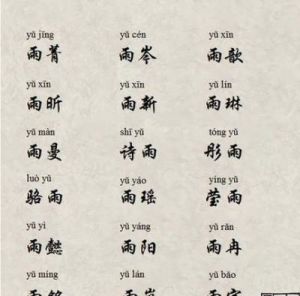 yǔ jīng yǔ cén yǔ xīn
雨菁 雨岑 雨歆
yǔ xīn yǔ xīn yǔ lín
雨昕 雨新 雨琳
yǔ màn shī yǔ tóng yǔ
雨曼 诗雨 彤雨
luò yǔ yǔ yáo yíng yǔ
骆雨 雨瑶 莹雨
yǔ yì yǔ yáng yǔ rǎn
雨懿 雨阳 雨冉
yǔ míng yǔ lán yǔ bǎo